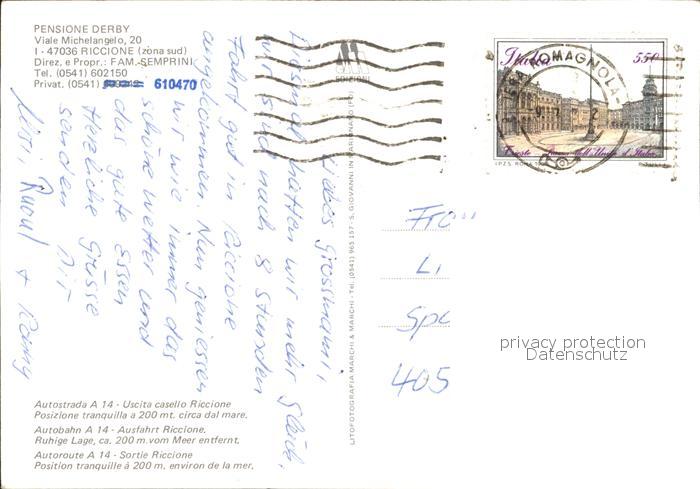 PENSIONE DERBY
Viale Michelangelo, 20
I - 47036 RICCIONE (zona sud)
Direz. e Propr.: FAM. SEMPRINI
Tel. (0541) 602150
Privat. (0541) 610470
EDIZIONI
Italia 550
ROMAGNOLA
Trieste Piazza dell'Unità d'Italia
I.P.Z.S. ROMA
Liebes Grossmami,
Diesmal hatten wir mehr Glück,
wir sind nach 8 Stunden
Fahrt gut in Riccione
angekommen. Nun geniessen
wir wie immer das
schöne Wetter und
das gute Essen
Herzliche Grüsse
senden Dir
Raoul +
LITOFOTOGRAFIA MARCHI & MARCHI - Tel. (0541) 965 157 - S. GIOVANNI IN MARIGNANO (FO)
Li
405
privacy protection
Datenschutz
Autostrada A 14 - Uscita casello Riccione
Posizione tranquilla a 200 mt. circa dal mare.
Autobahn A 14 - Ausfahrt Riccione.
Ruhige Lage, ca. 200 m. vom Meer entfernt.
Autoroute A 14 - Sortie Riccione
Position tranquille à 200 m. environ de la mer.